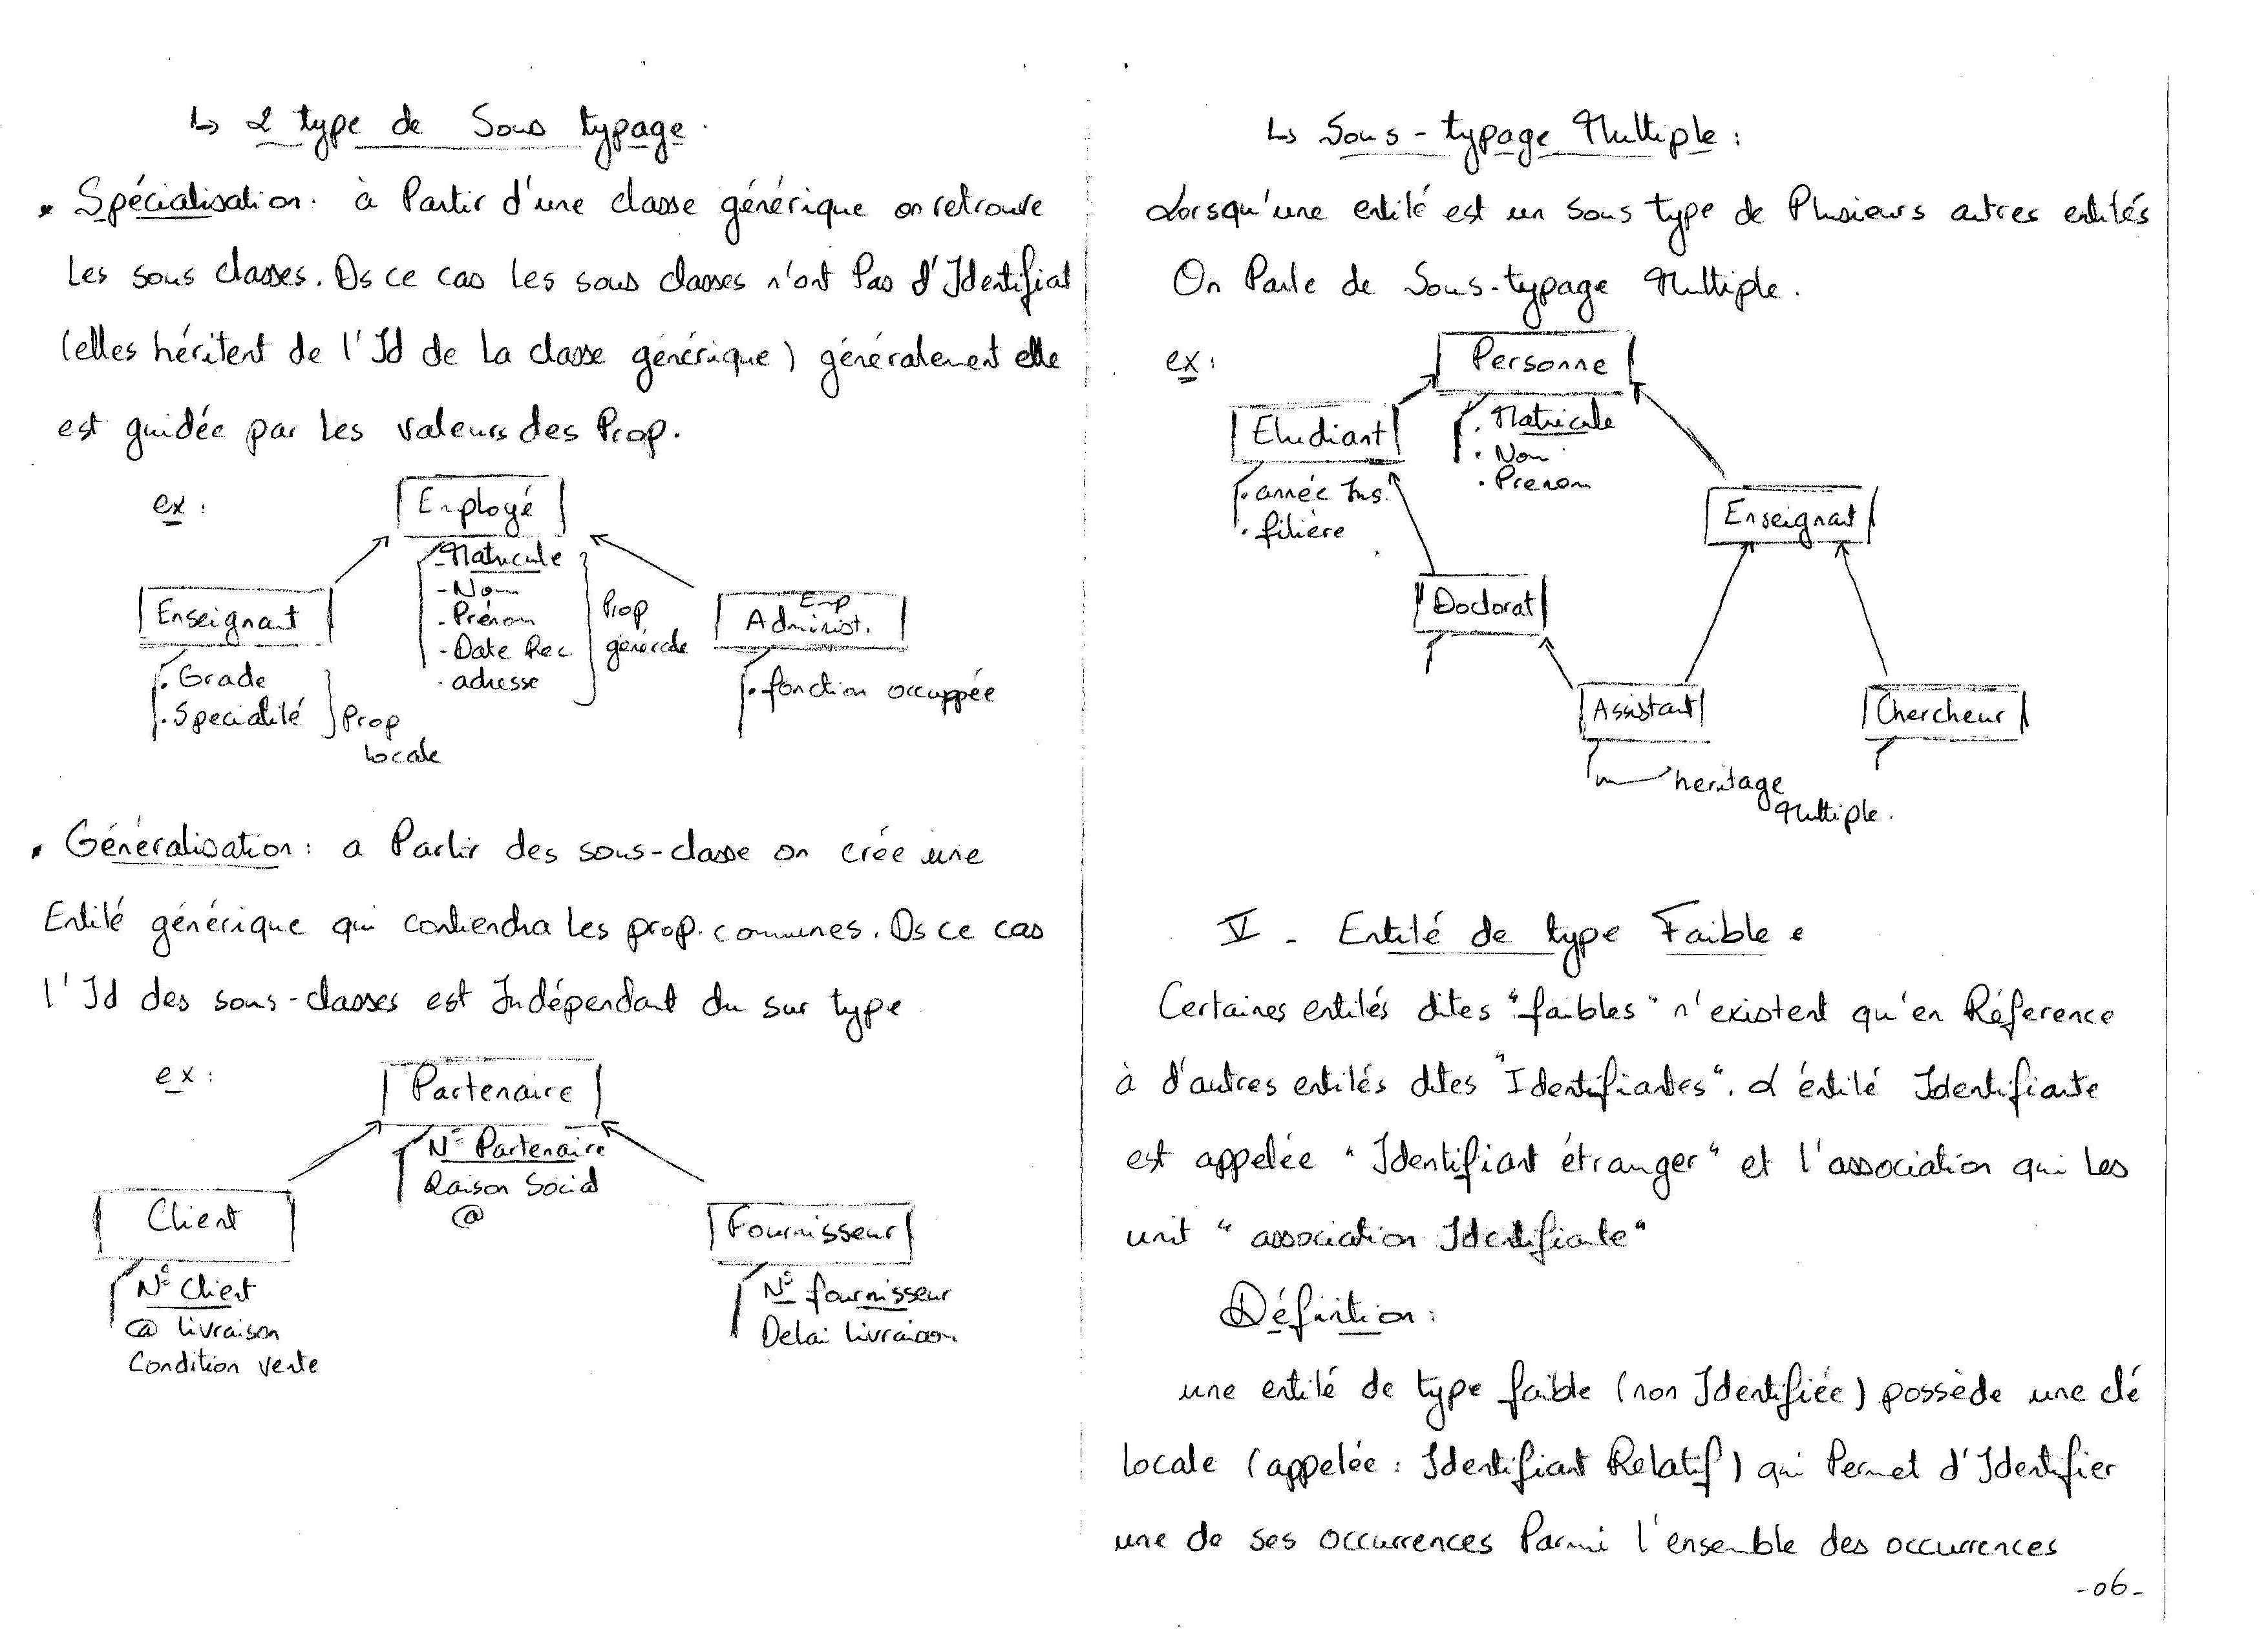 ↳ 2 type de Sous typage.
• Spécialisation. à Partir d'une classe générique on retrouve
les sous classes. Ds ce cas les sous classes n'ont Pas d'Identifiat
(elles héritent de l'Id de la classe générique) généralement elle
est guidée par les valeurs des Prop.
ex :
Employé
- Matricule
- Nom
- Prénom
- Date Rec
. adresse
Prop
générale
Enseignant
. Grade
. Specialité
Prop
locale
Emp
Administ.
. fonction occuppée
• Généralisation : a Partir des sous-classe on crée une
Entité générique qui contiendra les prop. communes. Ds ce cas
l'Id des sous-classes est Indépendant du sur type
ex :
Partenaire
N° Partenaire
Raison Social
@
Client
N° Client
@ livraison
Condition vente
Fournisseur
N° fournisseur
Delai livraison
↳ Sous-typage Multiple :
Lorsqu'une entité est un sous type de Plusieurs autres entités
On Parle de Sous-typage Multiple.
ex :
Personne
. Matricule
. Nom
. Prenom
Etudiant
. année Ins.
. filière
Enseignant
Doctorat
Assistant
Chercheur
heritage
Multiple.
V - Entité de type Faible :
Certaines entités dites "faibles" n'existent qu'en Réference
à d'autres entités dites "Identifiantes". L'éntité Identifiante
est appelée "Identifiant étranger" et l'association qui les
unit "association Identifiante"
Définition :
une entité de type faible (non Identifiée) possède une clé
locale (appelée : Identifiant Relatif) qui Permet d'Identifier
une de ses occurrences Parmi l'ensemble des occurrences
-06-